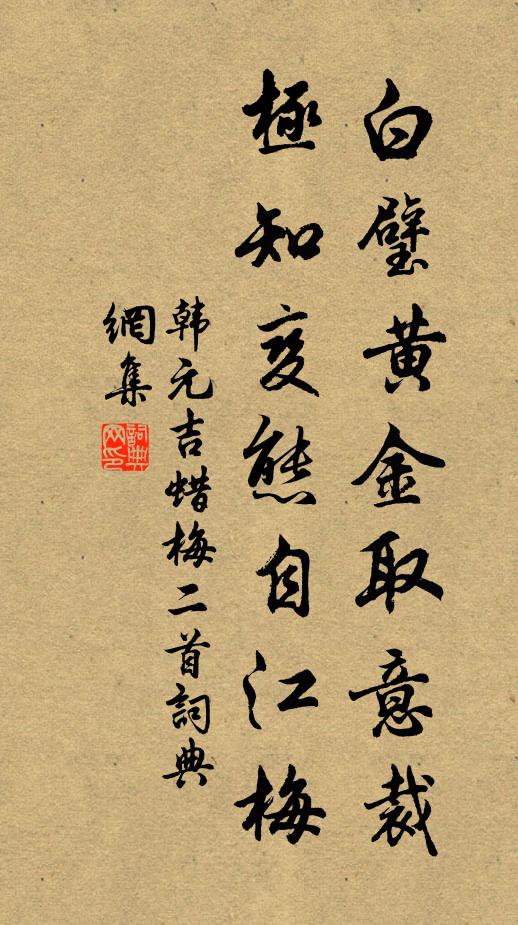 白璧黄金取意裁
極知变態自江梅
韩元吉蜡梅二首詞典
網集
詞典
网印